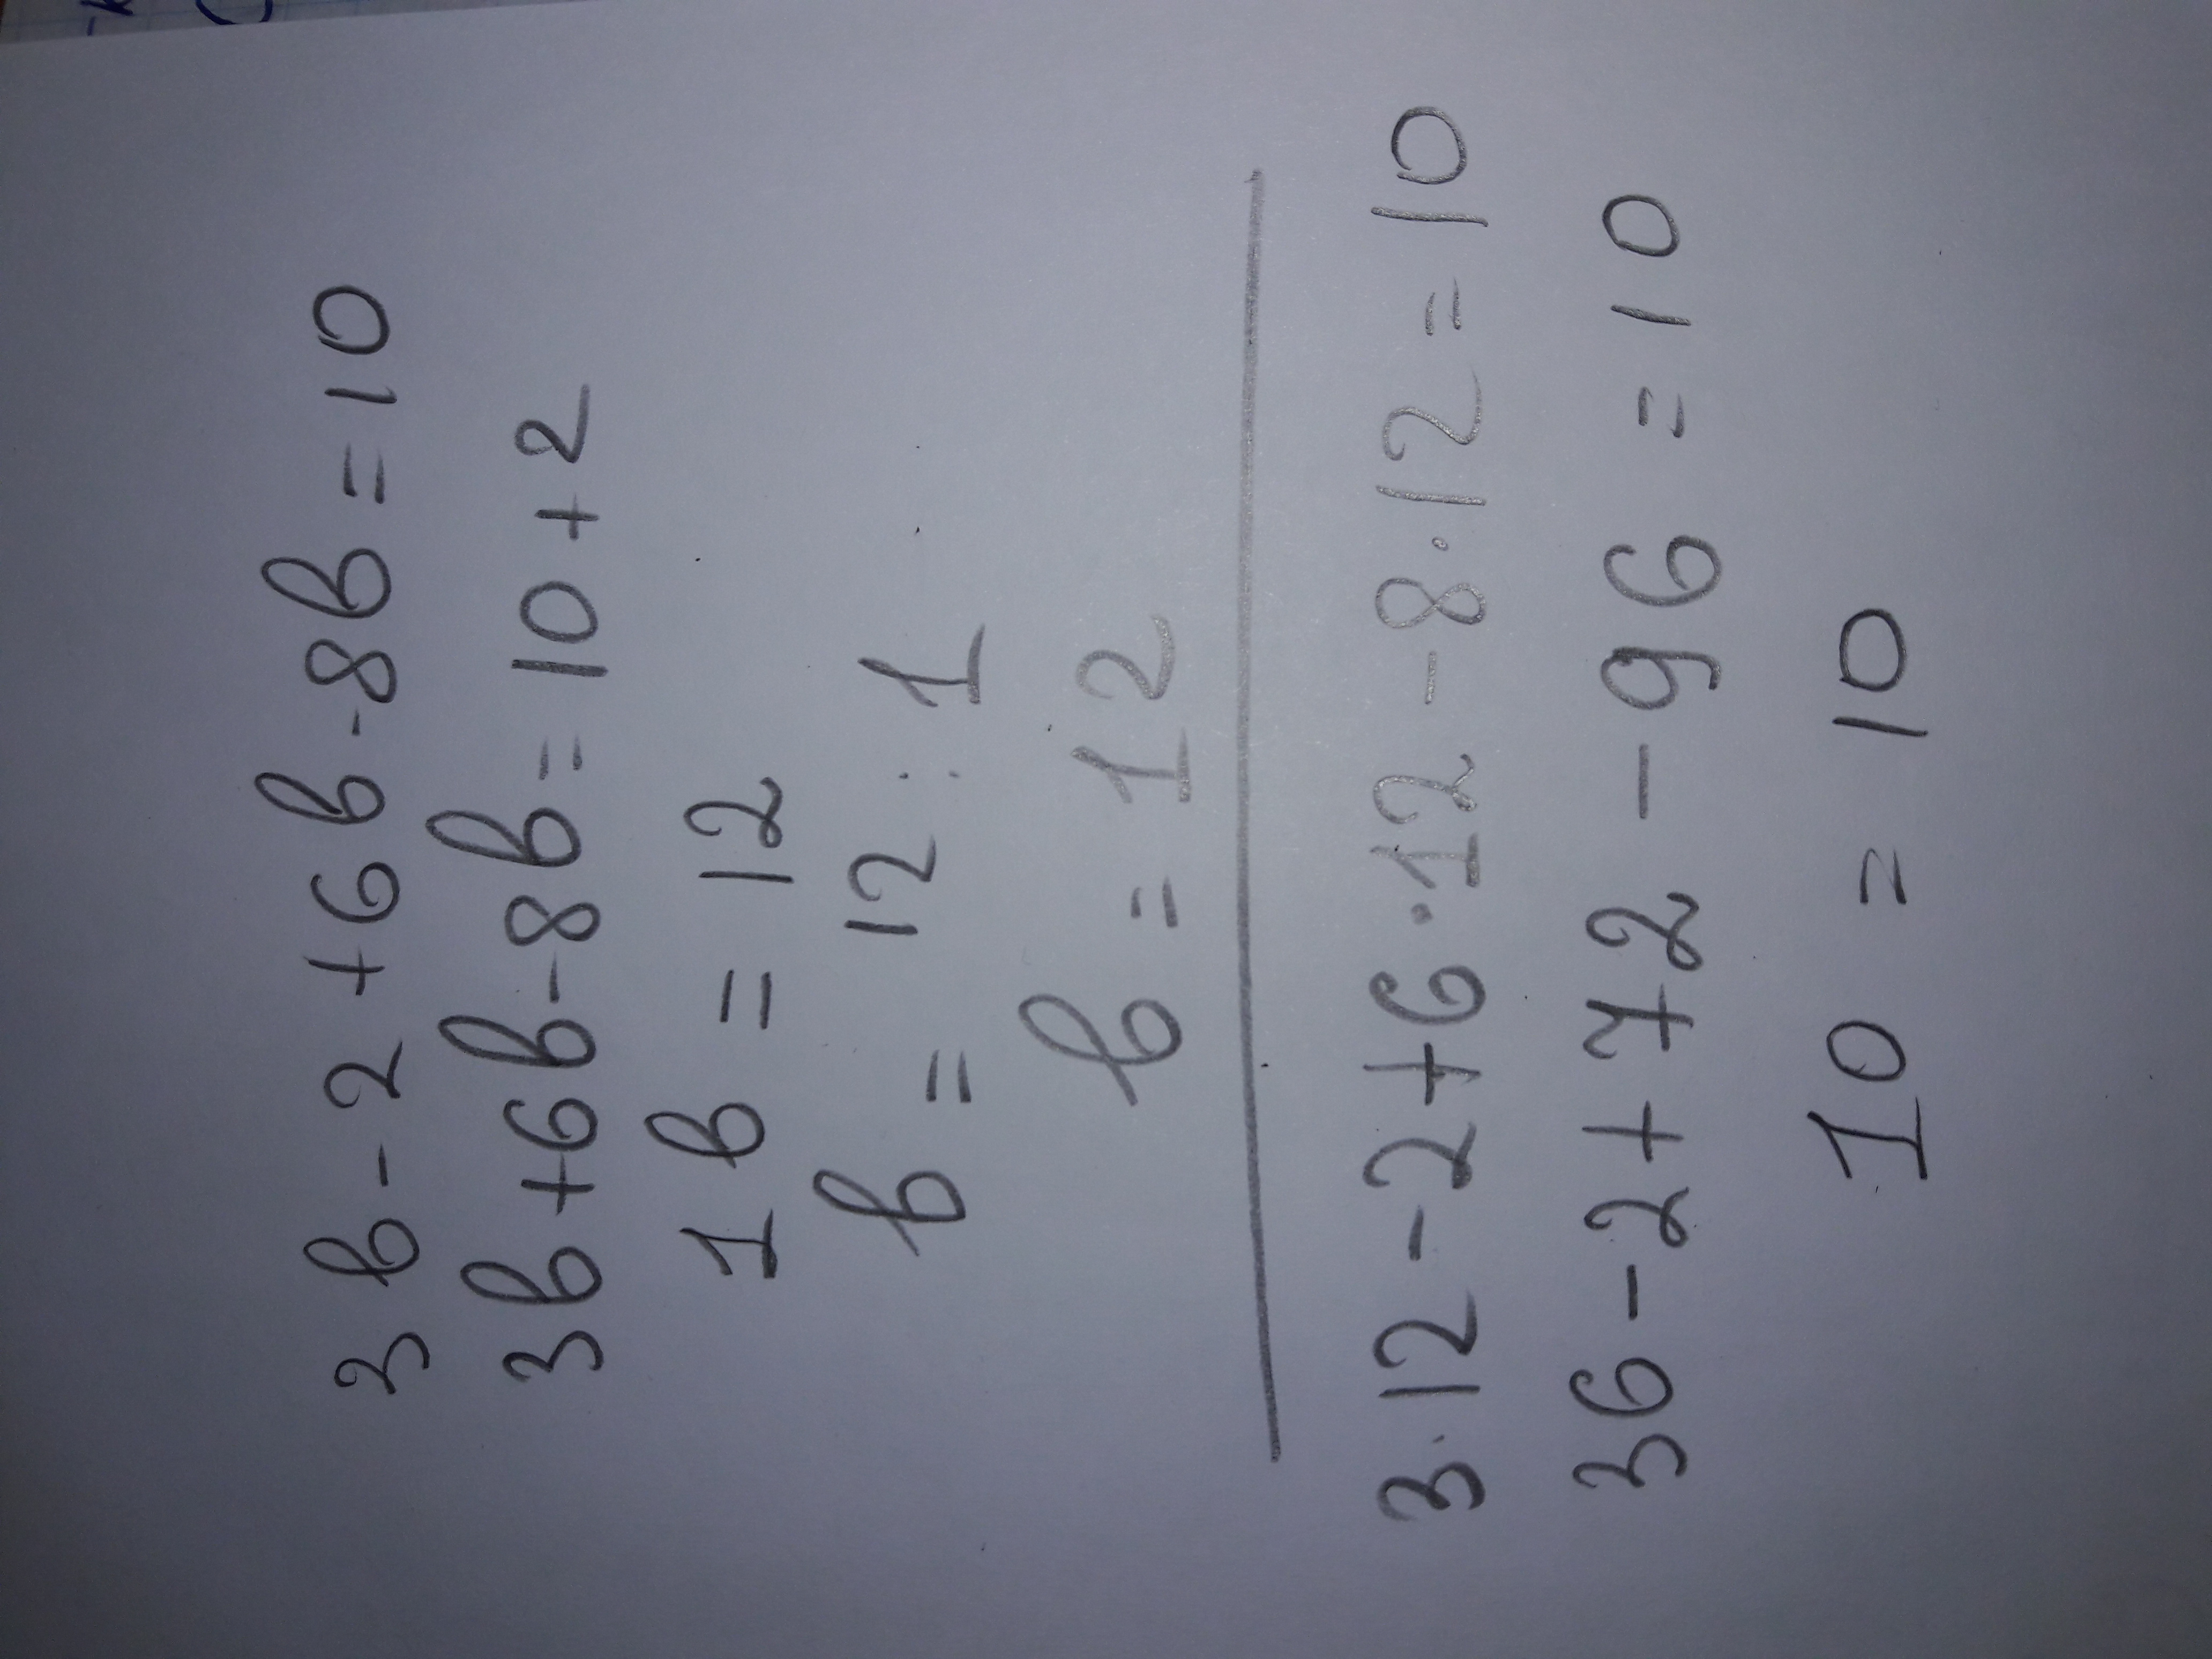 3b-2+6b-8b=10
3b+6b-8b=10+2
1b=12
b=12:1
b=12
3·12-2+6·12-8·12=10
36-2+72-96=10
10=10